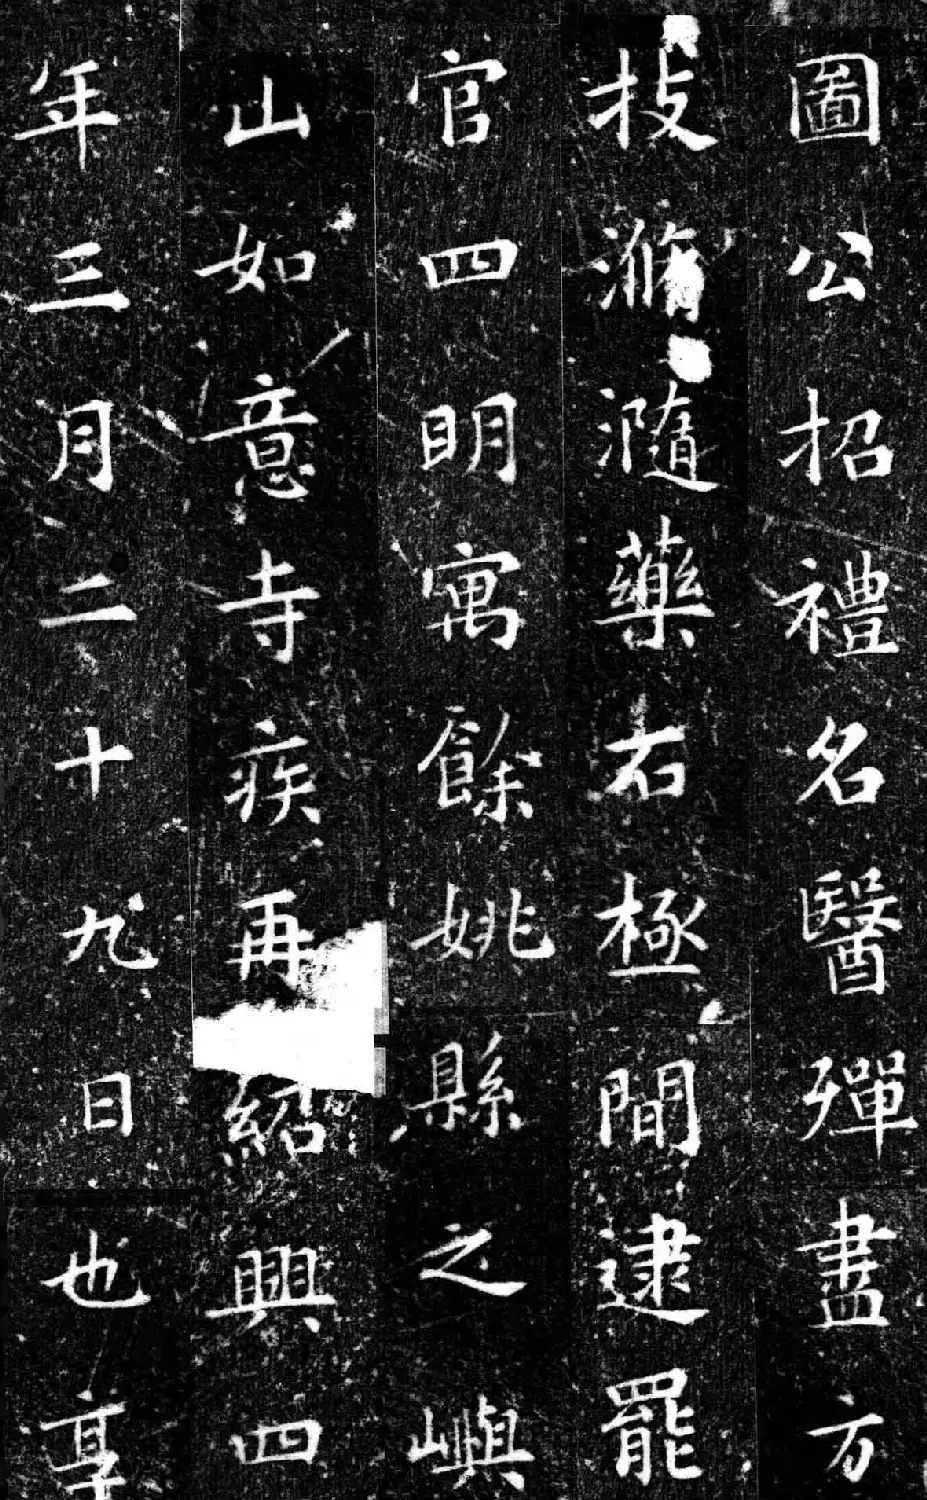 圖公招禮名醫殫盡方
技滫瀡藥石極閒逮罷
官四明寓餘姚縣之嶼
山如意寺疾再紹興四
年三月二十九日也享